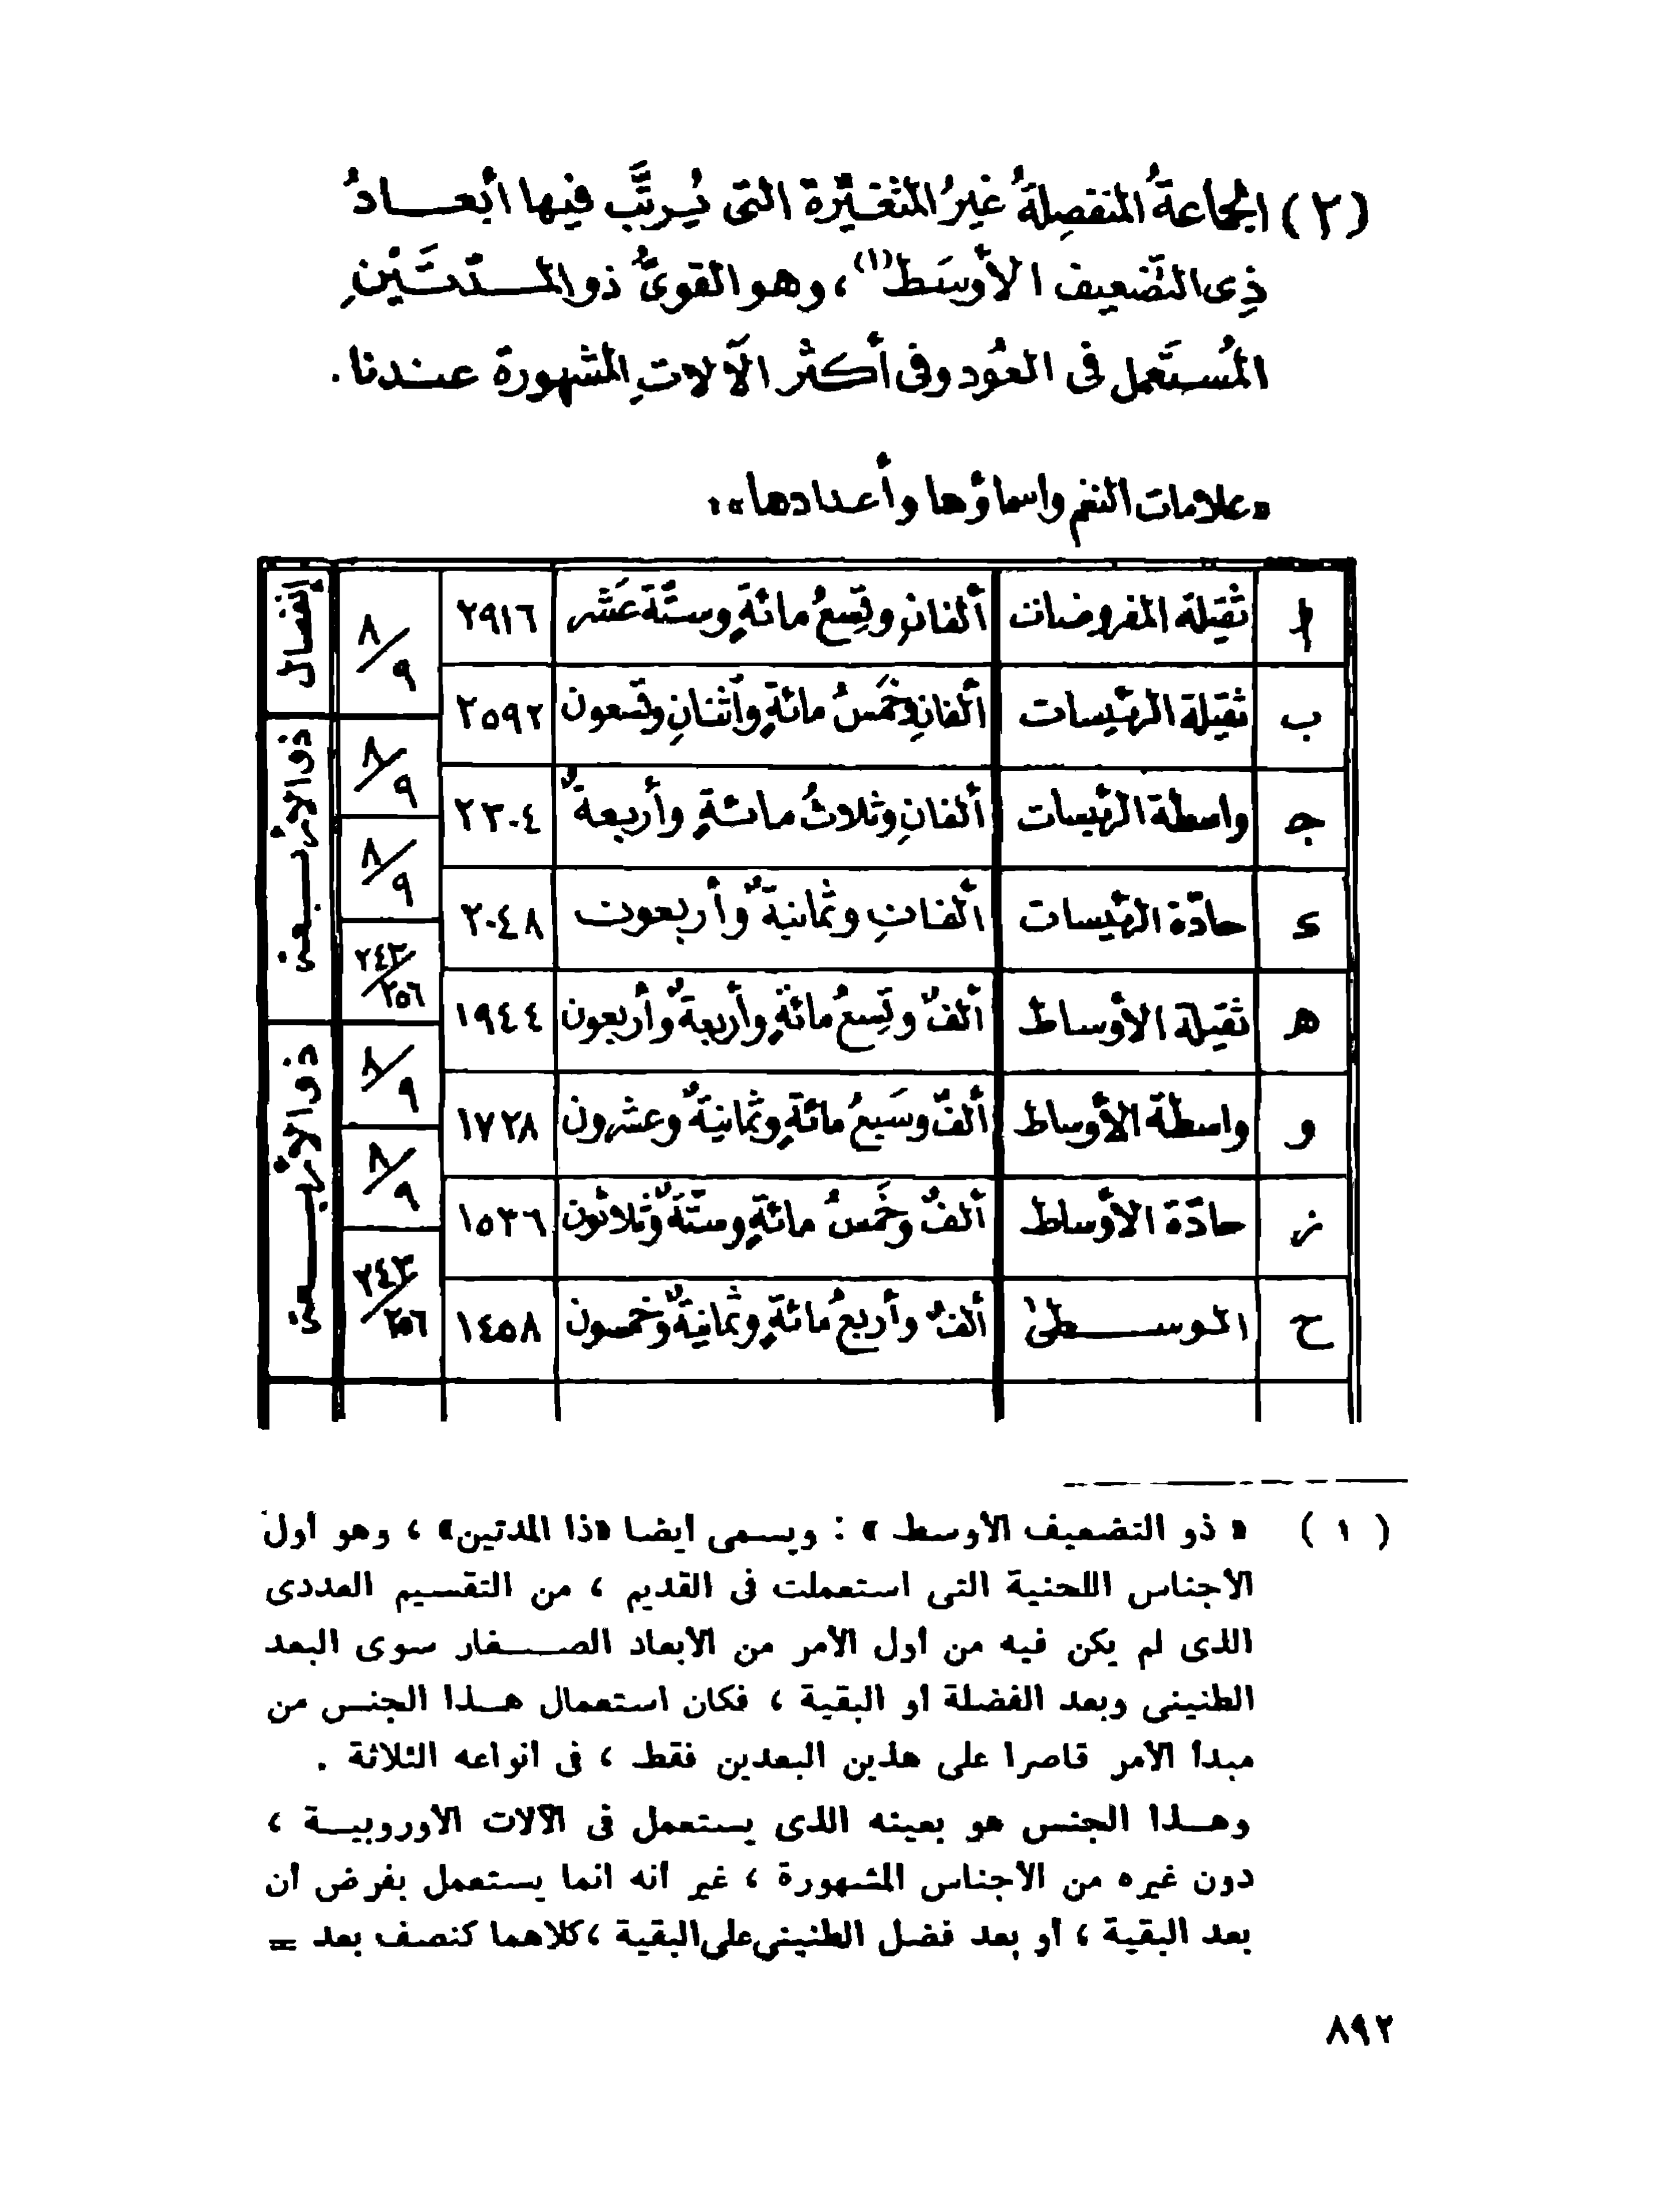 (٢) الجماعةُ المنفصِلةُ غيرُ المتغيّرة التى يُرتَّب فيها أبعـــادُ
ذِى التضعيف الأوسَط (١)، وهو القوىُّ ذو المـــدّتَيْنِ
المُستَعمل فى العُود وفى أكثر الآلاتِ المشهورة عنـدنا.
«علامات النغم واسماؤها وأعدادها».
ا ثقيلة المفروضات ألفانِ وتِسعُ مائةٍ وستّة عَشر ٢٩١٦
ب ثقيلة الرئيسات ألفانِ وخَمسُ مائةٍ واثنانِ وتسعون ٢٥٩٢
ج واسطة الرئيسات ألفانِ وثلاثُ مائةٍ وأربعةٌ ٢٣٠٤
د حادّة الرئيسات ألفانِ وثمانيةٌ وأربعون ٢٠٤٨
ه ثقيلة الأوساط ألفٌ وتِسعُ مائةٍ وأربعةٌ وأربعون ١٩٤٤
و واسطة الأوساط ألفٌ وسَبعُ مائةٍ وثمانيةٌ وعشرون ١٧٢٨
ز حادّة الأوساط ألفٌ وخَمسُ مائةٍ وستّةٌ وثلاثون ١٥٣٦
ح الوســـطىٰ ألفٌ وأربعُ مائةٍ وثمانيةٌ وخمسون ١٤٥٨
٨/٩
٨/٩
٨/٩
٢٤٣/٢٥٦
٨/٩
٨/٩
٢٤٣/٢٥٦
إنفصال
ذو الأربـــعة
ذو الأربـــعة
(١) « ذو التضعيف الأوسط » : ويسمى أيضا «ذا المدتين» ، وهو أول
الأجناس اللحنية التى استعملت فى القديم ، من التقسيم العددى
الذى لم يكن فيه من أول الأمر من الأبعاد الصـــغار سوى البعد
الطنينى وبعد الفضلة أو البقية ، فكان استعمال هـذا الجنس من
مبدأ الأمر قاصرا على هذين البعدين فقط ، فى أنواعه الثلاثة .
وهـذا الجنس هو بعينه الذى يستعمل فى الآلات الأوروبيـة ،
دون غيره من الأجناس المشهورة ، غير أنه انما يستعمل بفرض أن
بعد البقية ، أو بعد فضل الطنينى على البقية ، كلاهما كنصف بعد =
٨٩٢